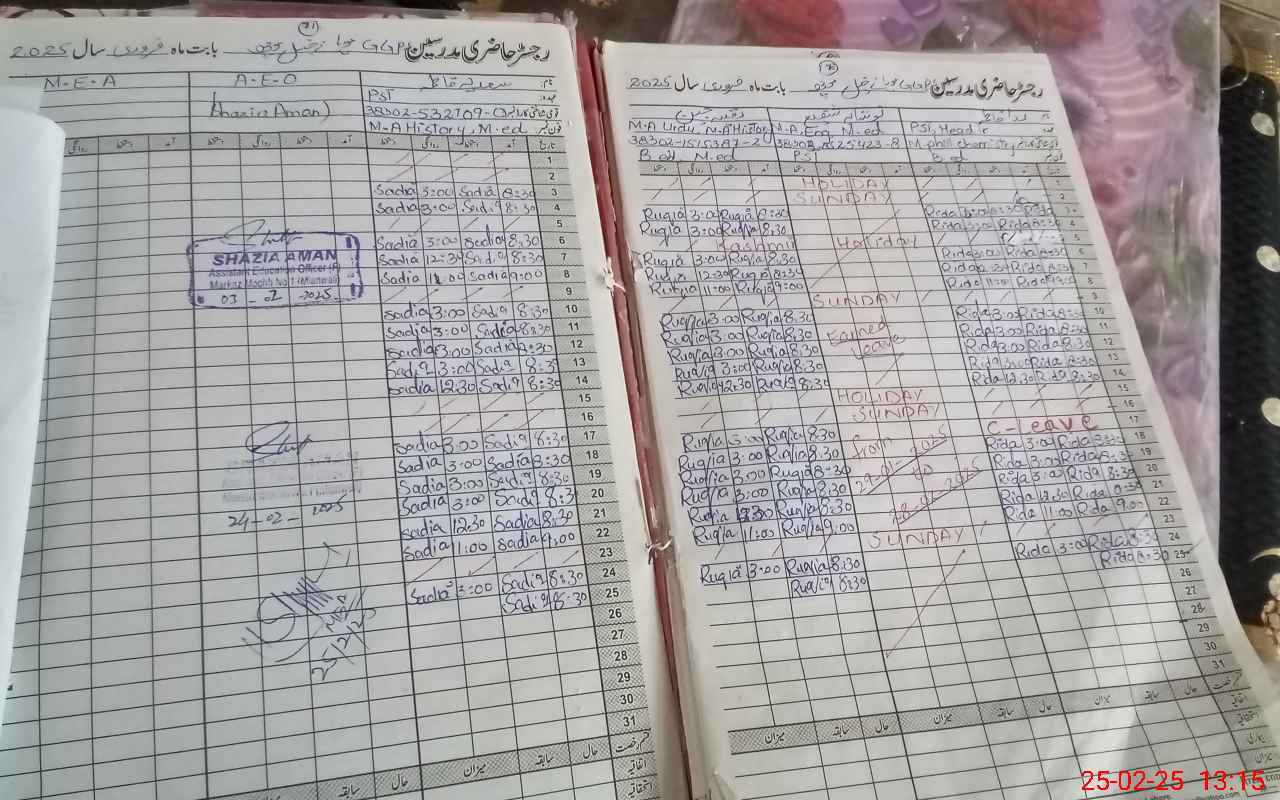 21
رجسٹر حاضری مدرسین GGPS بابت ماہ فروری سال 2025
M-E-A A.E.O
PST
(Shazia Aman)
M-A History, M.ed
1
2
Sadia 3:00 Sadia 8:30 3
Sadia 3:00 Sadia 8:30 4
5
Sadia 3:00 Sadia 8:30 6
Sadia 12:30 Sadia 8:30 7
Sadia 11:00 Sadia 9:00 8
9
Sadia 3:00 Sadia 8:30 10
Sadia 3:00 Sadia 8:30 11
Sadia 3:00 Sadia 8:30 12
Sadia 3:00 Sadia 8:3 13
Sadia 12:30 Sadia 8:30 14
15
16
Sadia 3:00 Sadia 8:30 17
Sadia 3:00 Sadia 8:30 18
Sadia 3:00 Sadia 8:30 19
Sadia 3:00 Sadia 8:3 20
Sadia 12:30 Sadia 8:30 21
Sadia 11:00 Sadia 9:00 22
23
Sadia 3:00 Sadia 8:30 24
Sadia 8:30 25
26
27
28
29
30
31
میزان سابقہ حال میزان سابقہ حال قسم رخصت
اتفاقیہ
استحقاقیہ
SHAZIA AMAN
Assistant Education Officer (F)
03-02-2025
24-02-2025
MEA
25/2/25
رجسٹر حاضری مدرسین GGPS بابت ماہ فروری سال 2025
M-A Urdu, M-A History M-A, Eng, M-ed PST, Head Tr
38302-1515387-2 M.phill chemistry
B.ed, M.ed PST B.ed
HOLIDAY 1
SUNDAY 2
Ruqia 3:00 Ruqia 8:30 Rida 3:00 Rida 3
Ruqia 3:00 Ruqia 8:30 Rida 3:00 Rida 8:30 4
Kashmir Holiday 5
Ruqia 3:00 Ruqia 8:30 Rida 3:00 Rida 8:30 6
Ruqia 12:30 Ruqia 8:30 Rida 12:30 Rida 8:30 7
Ruqia 11:00 Ruqia 9:00 Rida 11:00 Rida 9:00 8
SUNDAY 9
Ruqia 3:00 Ruqia 8:30 Rida 3:00 Rida 8:30 10
Ruqia 3:00 Ruqia 8:30 Earned Rida 3:00 Rida 8:30 11
Ruqia 3:00 Ruqia 8:30 Leave Rida 3:00 Rida 8:30 12
Ruqia 3:00 Ruqia 8:30 Rida 3:00 Rida 8:30 13
Ruqia 12:30 Ruqia 8:30 Rida 12:30 Rida 8:30 14
HOLIDAY 15
SUNDAY 16
Ruqia 3:00 Ruqia 8:30 C-Leave 17
Ruqia 3:00 Ruqia 8:30 from Rida 3:00 Rida 8:30 18
Ruqia 3:00 Ruqia 8:30 Rida 3:00 Rida 8:30 19
Ruqia 3:00 Ruqia 8:30 to Rida 3:00 Rida 8:30 20
Ruqia 12:30 Ruqia 8:30 Rida 12:30 Rida 8:30 21
Ruqia 11:00 Ruqia 9:00 Rida 11:00 Rida 9:00 22
SUNDAY 23
Ruqia 3:00 Ruqia 8:30 Rida 3:00 Rida 8:30 24
Ruqia 8:30 Rida 8:30 25
26
27
28
29
30
31
میزان سابقہ حال میزان سابقہ حال میزان سابقہ حال قسم رخصت
اتفاقیہ
استحقاقیہ
بیماری
25-02-25 13:15